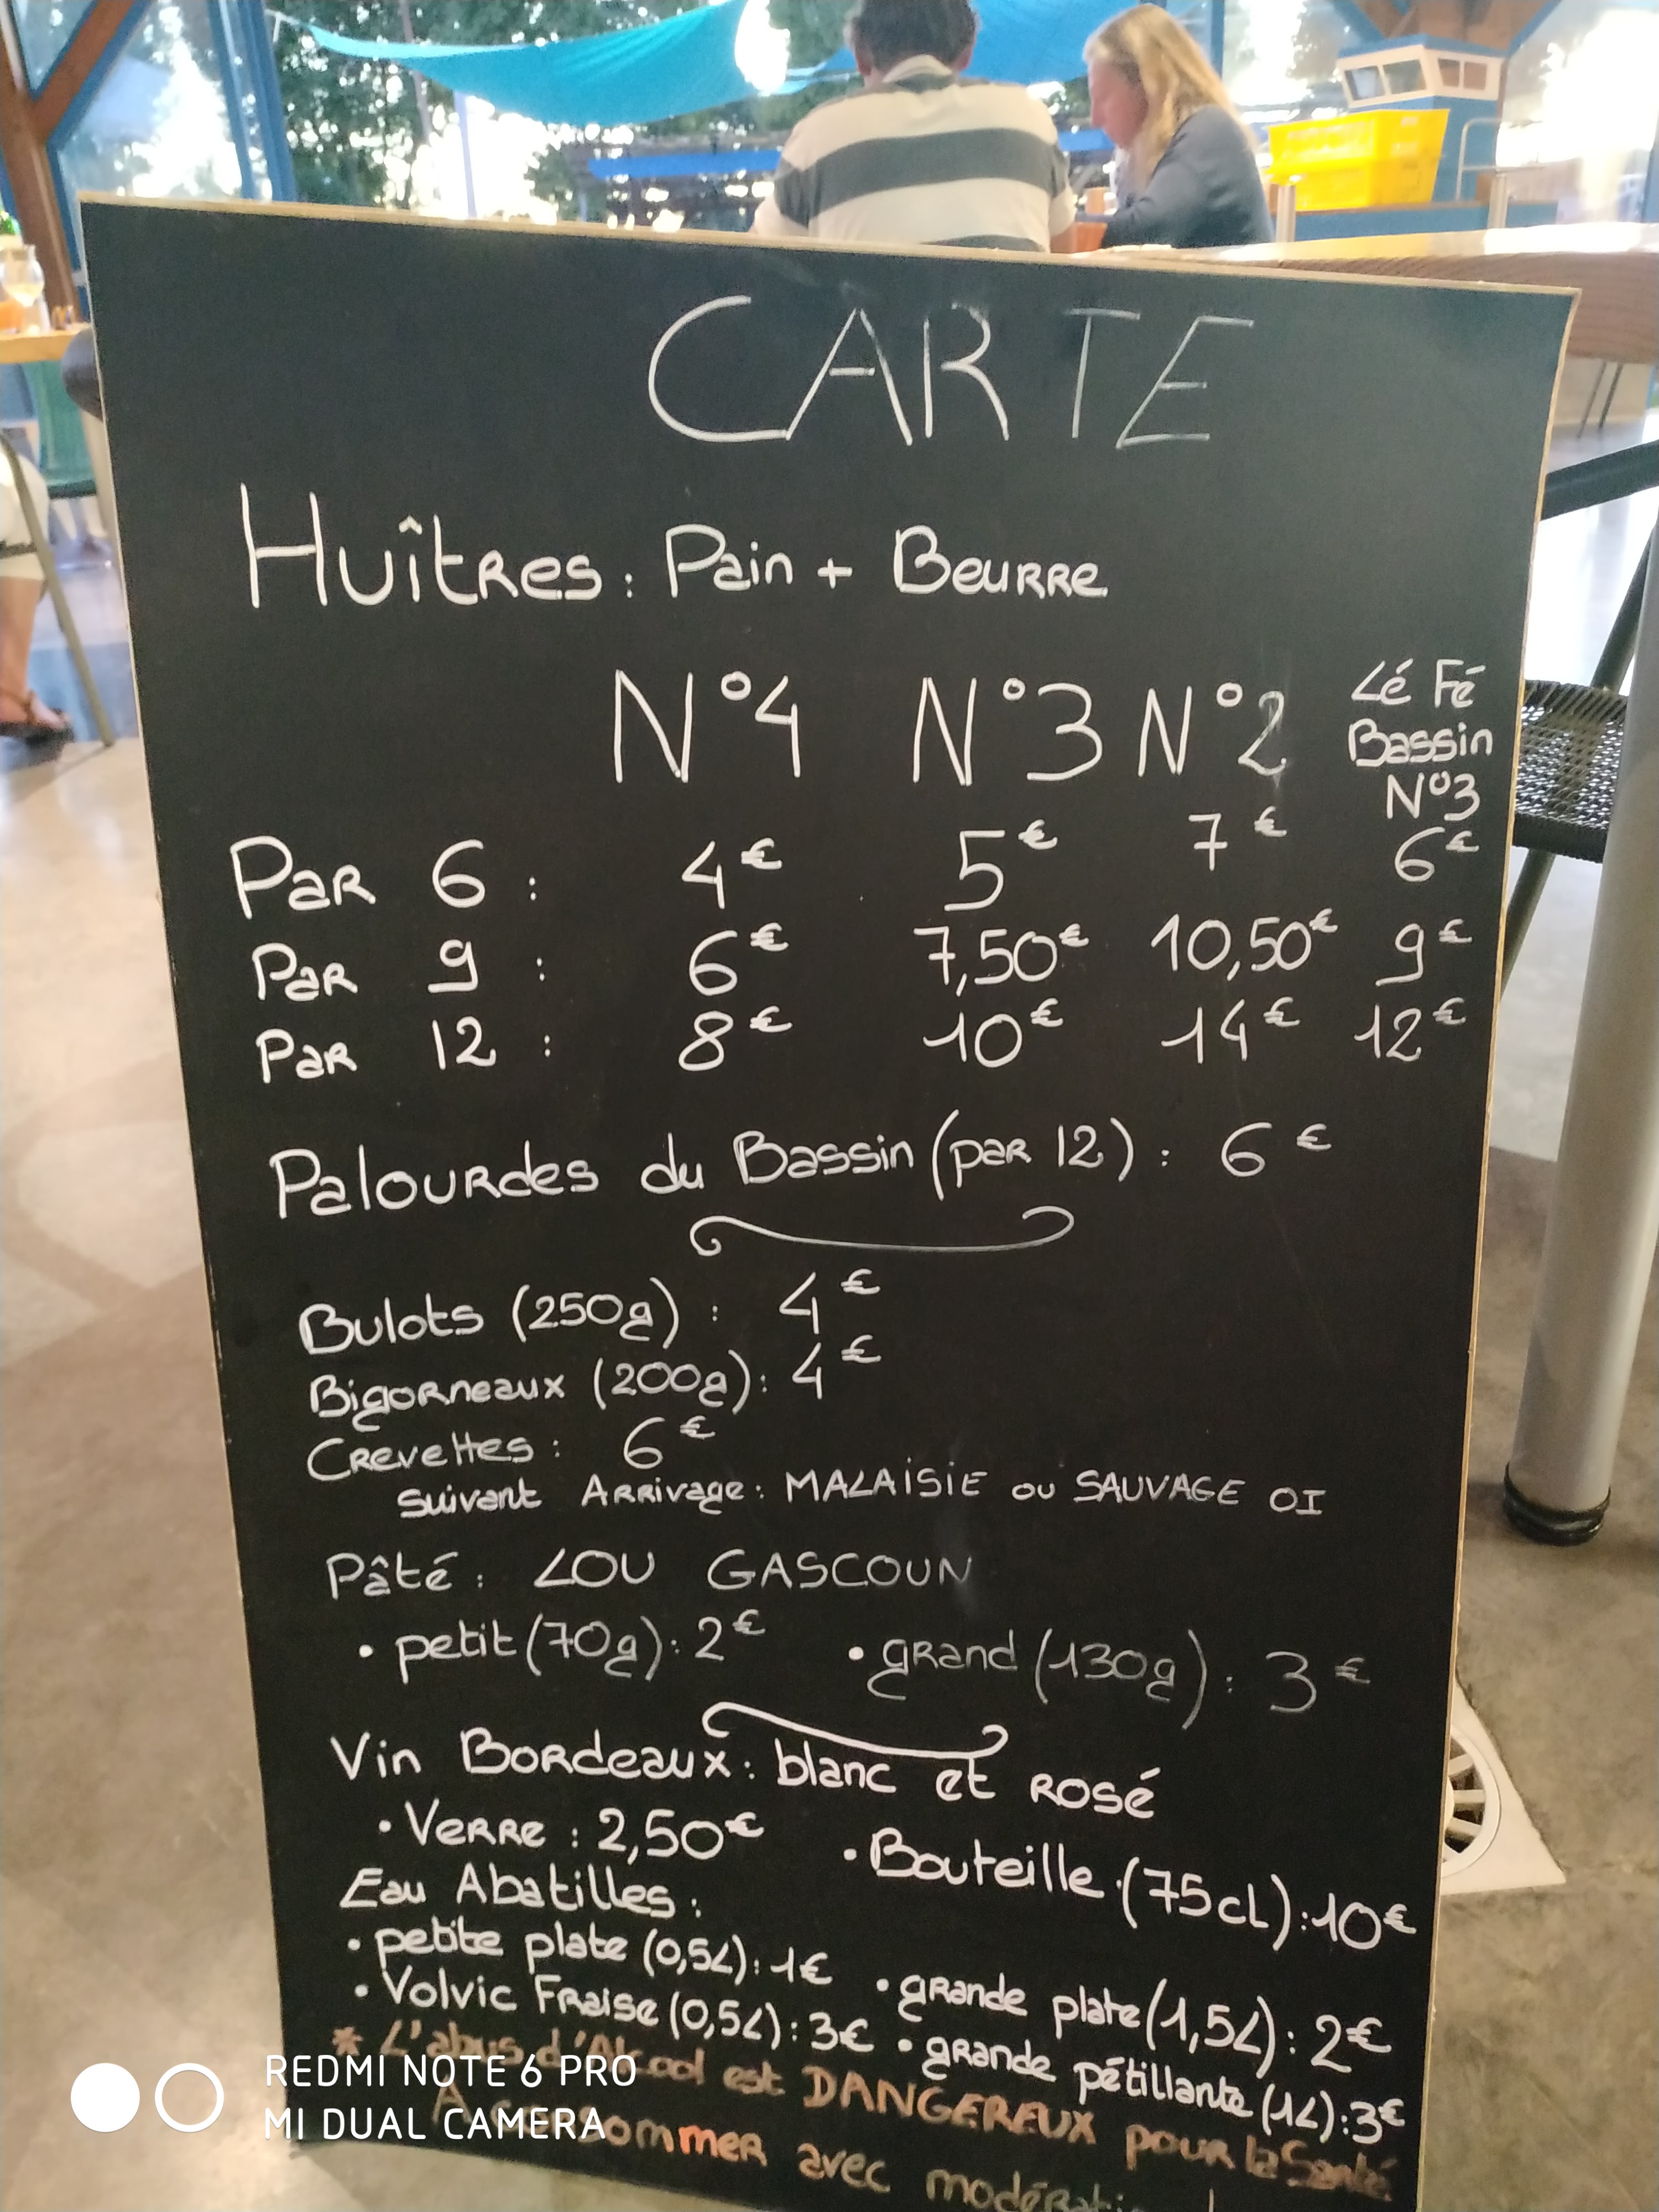 CARTE
Huîtres : Pain + Beurre
N°4 N°3 N°2 Lé Fé Bassin N°3
Par 6 : 4€ 5€ 7€ 6€
Par 9 : 6€ 7,50€ 10,50€ 9€
Par 12 : 8€ 10€ 14€ 12€
Palourdes du Bassin (par 12) : 6€
Bulots (250g) : 4€
Bigorneaux (200g) : 4€
Crevettes : 6€
suivant Arrivage : MALAISIE ou SAUVAGE OI
Pâté : LOU GASCOUN
• petit (70g) : 2€ • grand (130g) : 3€
Vin Bordeaux : blanc et rosé
• Verre : 2,50€ • Bouteille (75cl) : 10€
Eau Abatilles :
• petite plate (0,5L) : 1€ • grande plate (1,5L) : 2€
• Volvic Fraise (0,5L) : 3€ • grande pétillante (1L) : 3€
* L'abus d'Alcool est DANGEREUX pour la Santé
A consommer avec
REDMI NOTE 6 PRO
MI DUAL CAMERA